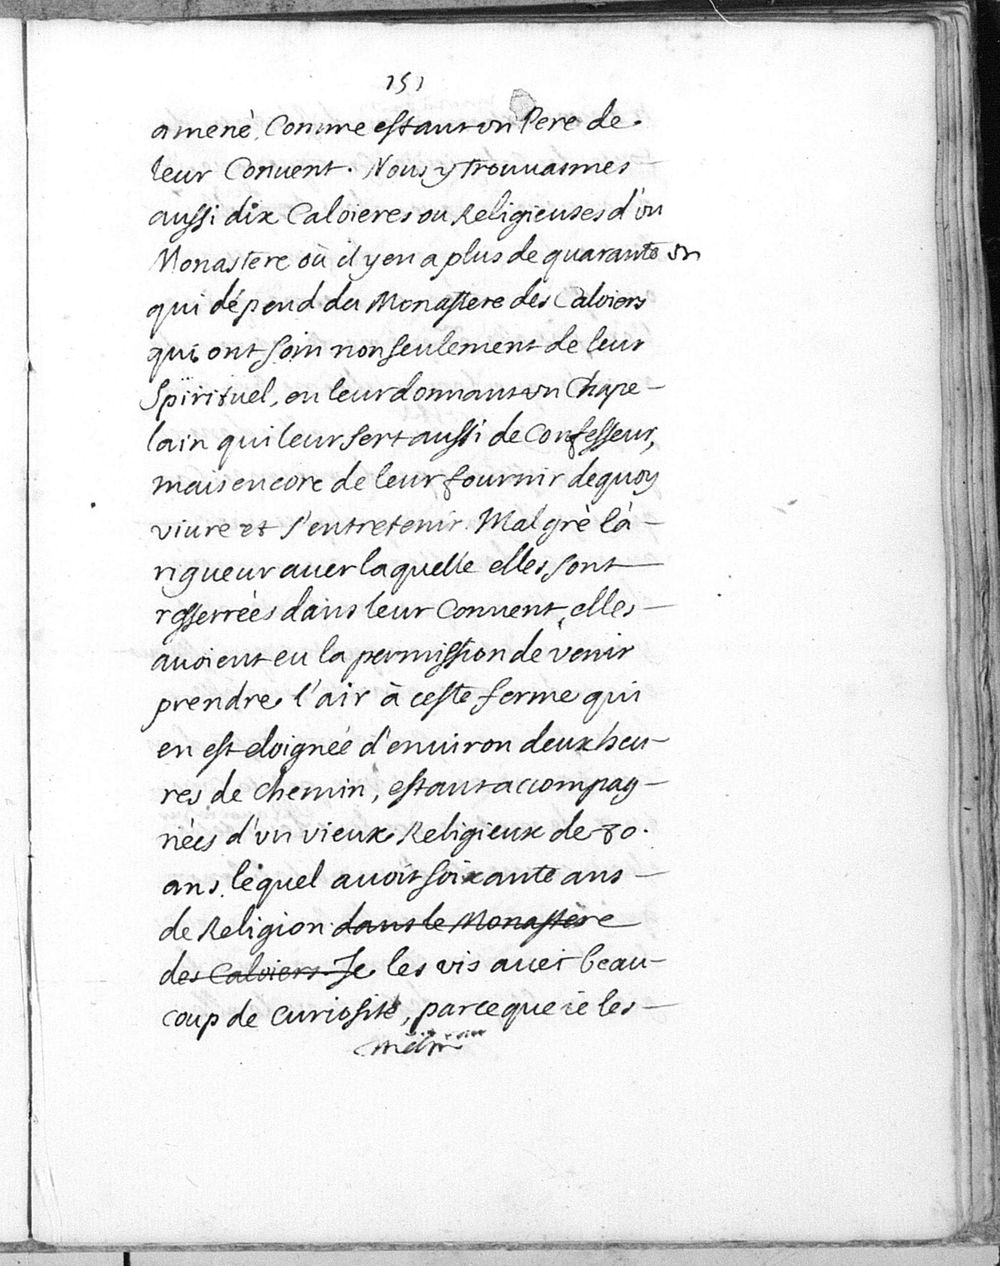 151
amené, Comme estant vn Pere de
leur Conuent. Nous y trouuasmes
aussi dix Caloieres ou Religieuses d'vn
Monastere où il y en a plus de quarante vn
qui dépend du Monastere des Caloiers
qui ont soin non seulement de leur
Spirituel, en leur donnant vn Chape-
lain qui leur sert aussi de Confesseur,
mais encore de leur fournir dequoy
viure et s'entretenir. Malgrè là
rigueur auec laquelle elles sont
resserrées dans leur Conuent, elles
auoient eu la permission de venir
prendre l'air à ceste ferme qui
en est eloignée d'enuiron deux heu-
res de chemin, estant accompag-
nées d'vn vieux Religieux de 80.
ans, lequel auoit soixante ans
de Religion dans le Monastère
des Caloiers. Je les vis auec beau-
coup de curiosité, parce que ie les